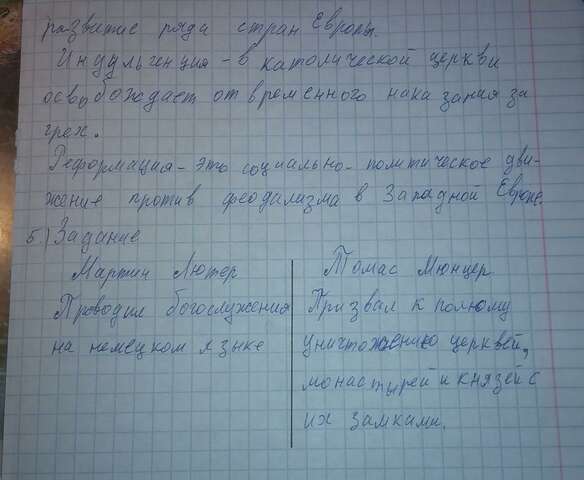 развитие ряда стран Европы.
Индульгенция - в католической церкви
освобождает от временного наказания за
грех.
Реформация - это социально-политическое дви-
жение против феодализма в Западной Европе.
5) Задание
Мартин Лютер
Проводил богослужения
на немецком языке
Томас Мюнцер
Призвал к полному
уничтожению церквей,
монастырей и князей с
их замками.